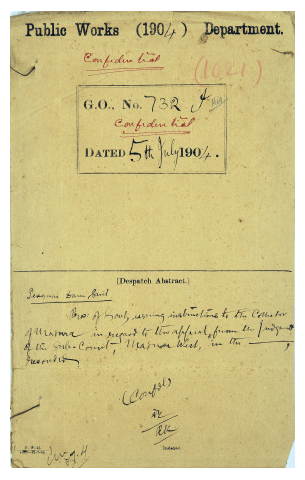 Public Works (1904) Department.
Confidential
(1021)
G.O., No. 732
Confidential
DATED 5th July 1904.
[Despatch Abstract.]
Dam Suit
issuing instructions to the Collector
of Madura in regard to the appeal from the Judgment
of the Sub-Court, Madura West, in the
recorded
(Confdl)
Indexed.